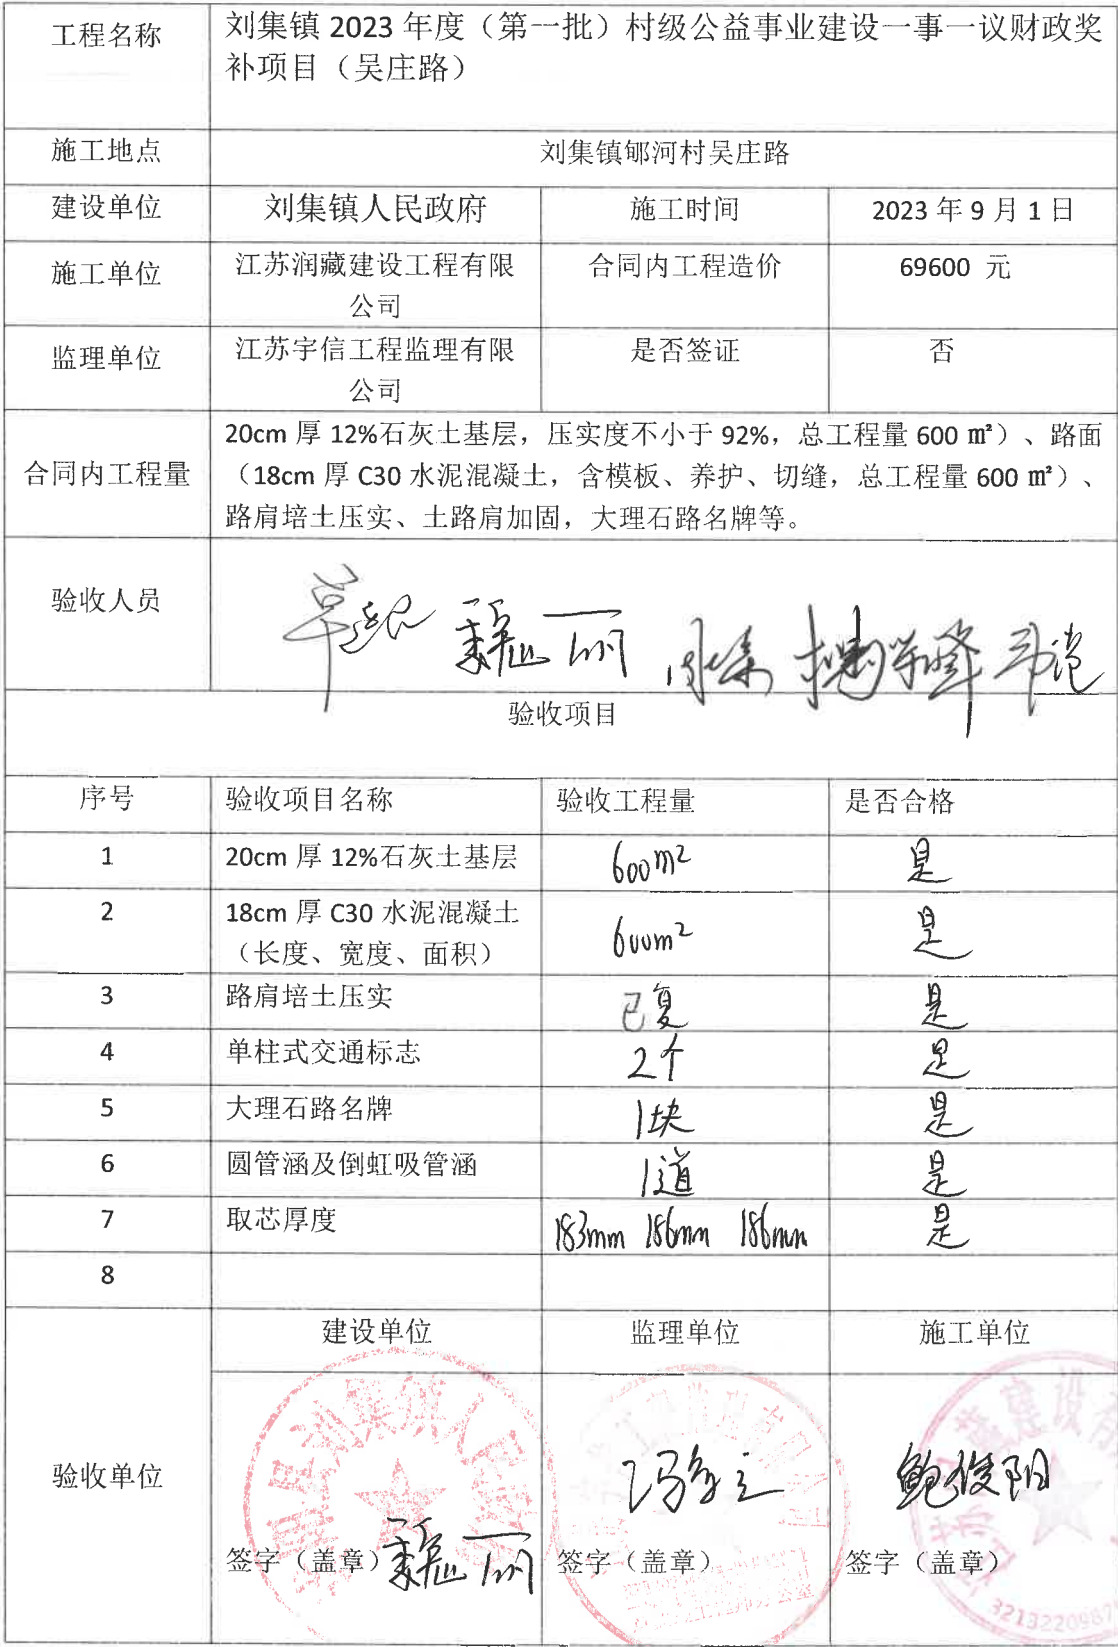 工程名称
刘集镇 2023 年度（第一批）村级公益事业建设一事一议财政奖
补项目（吴庄路）
施工地点
刘集镇郇河村吴庄路
建设单位
刘集镇人民政府
施工时间
2023 年 9 月 1 日
施工单位
江苏润藏建设工程有限
公司
合同内工程造价
69600 元
监理单位
江苏宇信工程监理有限
公司
是否签证
否
合同内工程量
20cm 厚 12%石灰土基层，压实度不小于 92%，总工程量 600 ㎡）、路面
（18cm 厚 C30 水泥混凝土，含模板、养护、切缝，总工程量 600 ㎡）、
路肩培土压实、土路肩加固，大理石路名牌等。
验收人员
魏丽
验收项目
序号
验收项目名称
验收工程量
是否合格
1
20cm 厚 12%石灰土基层
600m²
是
2
18cm 厚 C30 水泥混凝土
（长度、宽度、面积）
600m²
是
3
路肩培土压实
已复
是
4
单柱式交通标志
2个
是
5
大理石路名牌
1块
是
6
圆管涵及倒虹吸管涵
1道
是
7
取芯厚度
183mm 186mm 186mm
是
8
验收单位
建设单位
监理单位
施工单位
签字（盖章）
魏丽
签字（盖章）
签字（盖章）
鲍俊阳